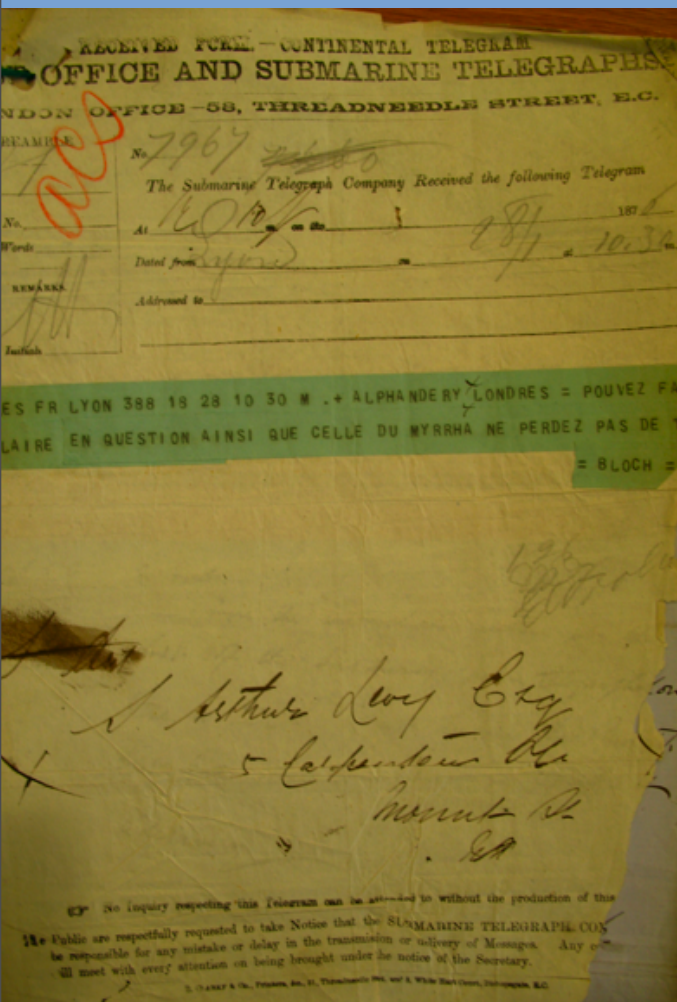 RECEIVED FORM.—CONTINENTAL TELEGRAM
OFFICE AND SUBMARINE TELEGRAPHS
NDON OFFICE—58, THREADNEEDLE STREET, E.C.
REAMPLE
acs
No. 7967
The Submarine Telegraph Company Received the following Telegram
No.
At on the 187
Words
Dated from Lyon on 28/1 at 10.30 m
REMARKS.
Addressed to
Initials
ES FR LYON 388 18 28 10 30 M .+ ALPHANDERY LONDRES = POUVEZ FA
LAIRE EN QUESTION AINSI QUE CELLE DU MYRRHA NE PERDEZ PAS DE
= BLOCH =
S Arthur Levy Esq
5 Carpenters
Mount St
No Inquiry respecting this Telegram can be attended to without the production of this
The Public are respectfully requested to take Notice that the SUBMARINE TELEGRAPH COM
be responsible for any mistake or delay in the transmission or delivery of Messages. Any
ill meet with every attention on being brought under he notice of the Secretary.